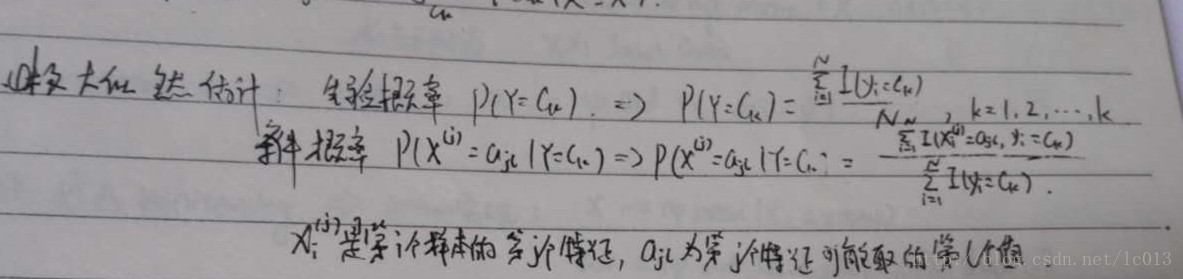 极大似然估计: 先验概率 P(Y=Cₖ) => P(Y=Cₖ) = \frac{\sum_{i=1}^{N} I(y_i=C_k)}{N}, k=1,2,...,k
条件概率 P(X^{(j)}=a_{jl}|Y=C_k) => P(X^{(j)}=a_{jl}|Y=C_k) = \frac{\sum_{i=1}^{N} I(X_i^{(j)}=a_{jl}, y_i=C_k)}{\sum_{i=1}^{N} I(y_i=C_k)}.
x_i^{(j)}是第i个样本的第j个特征, a_{jl}为第j个特征可能取的第l个值
http://blog.csdn.net/lc013